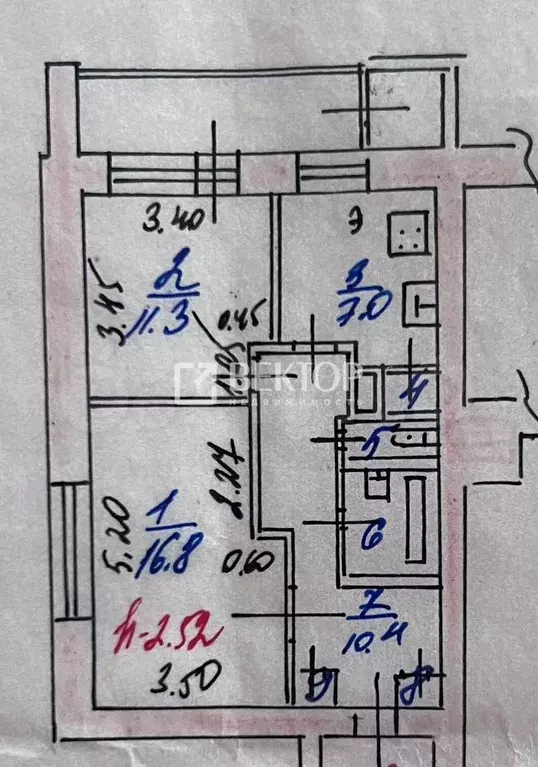 3.40
Э
2
11.3
3.45
0.45
3
7.0
1.05
ВЕКТОР
НЕДВИЖИМОСТЬ
4
5
2.27
1
16.8
5.20
0.60
6
h-2.52
7
10.4
3.50
9
8